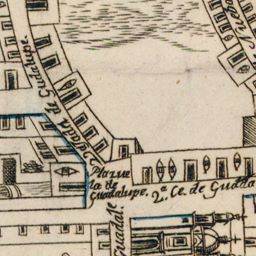 Guadalupe.
de Guadalupe.
Plazue
la de
Guadalupe.
2.ª Ce. de Guada
Guadal.